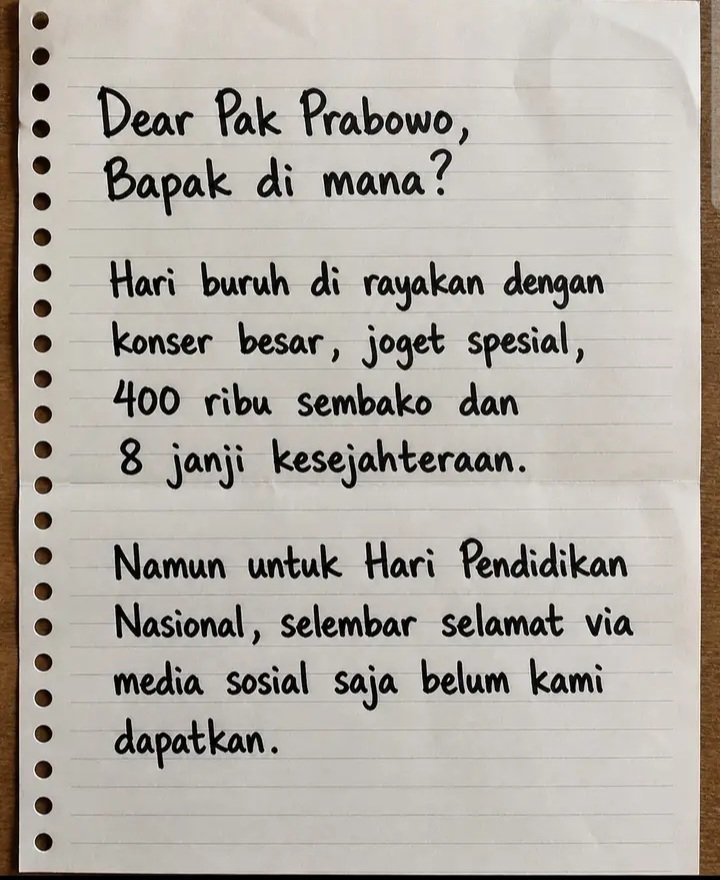 Dear Pak Prabowo,
Bapak di mana?
Hari buruh di rayakan dengan
konser besar, joget spesial,
400 ribu sembako dan
8 janji kesejahteraan.
Namun untuk Hari Pendidikan
Nasional, selembar selamat via
media sosial saja belum kami
dapatkan.